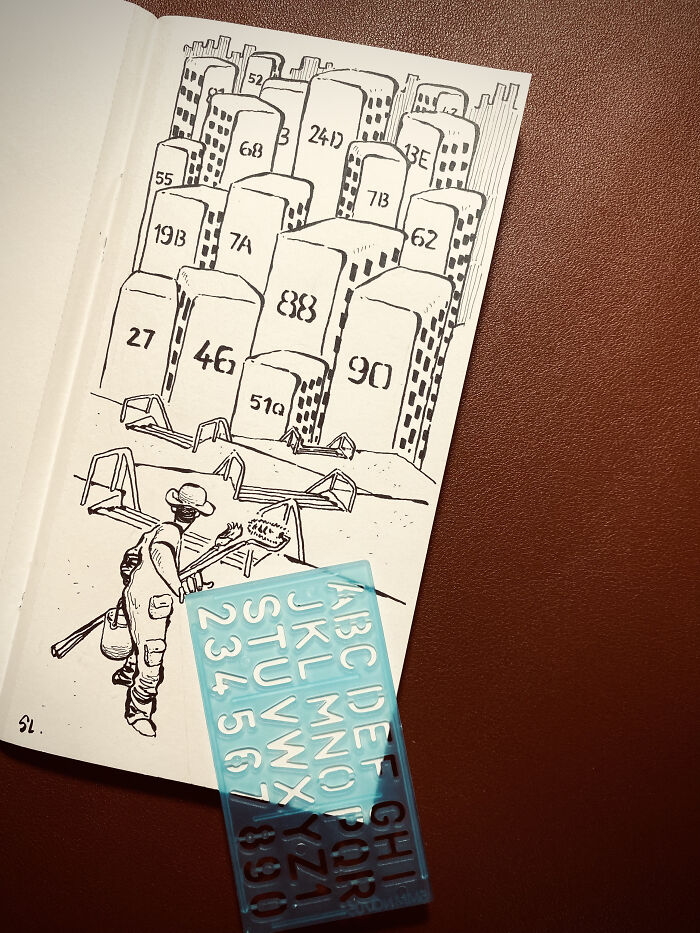 52
68
24D
13E
55
7B
19B
7A
62
88
27
4G
90
51Q
SL.
ABCDEFGHI
JKLMNOPQR
STUVWXYZ1
234567890